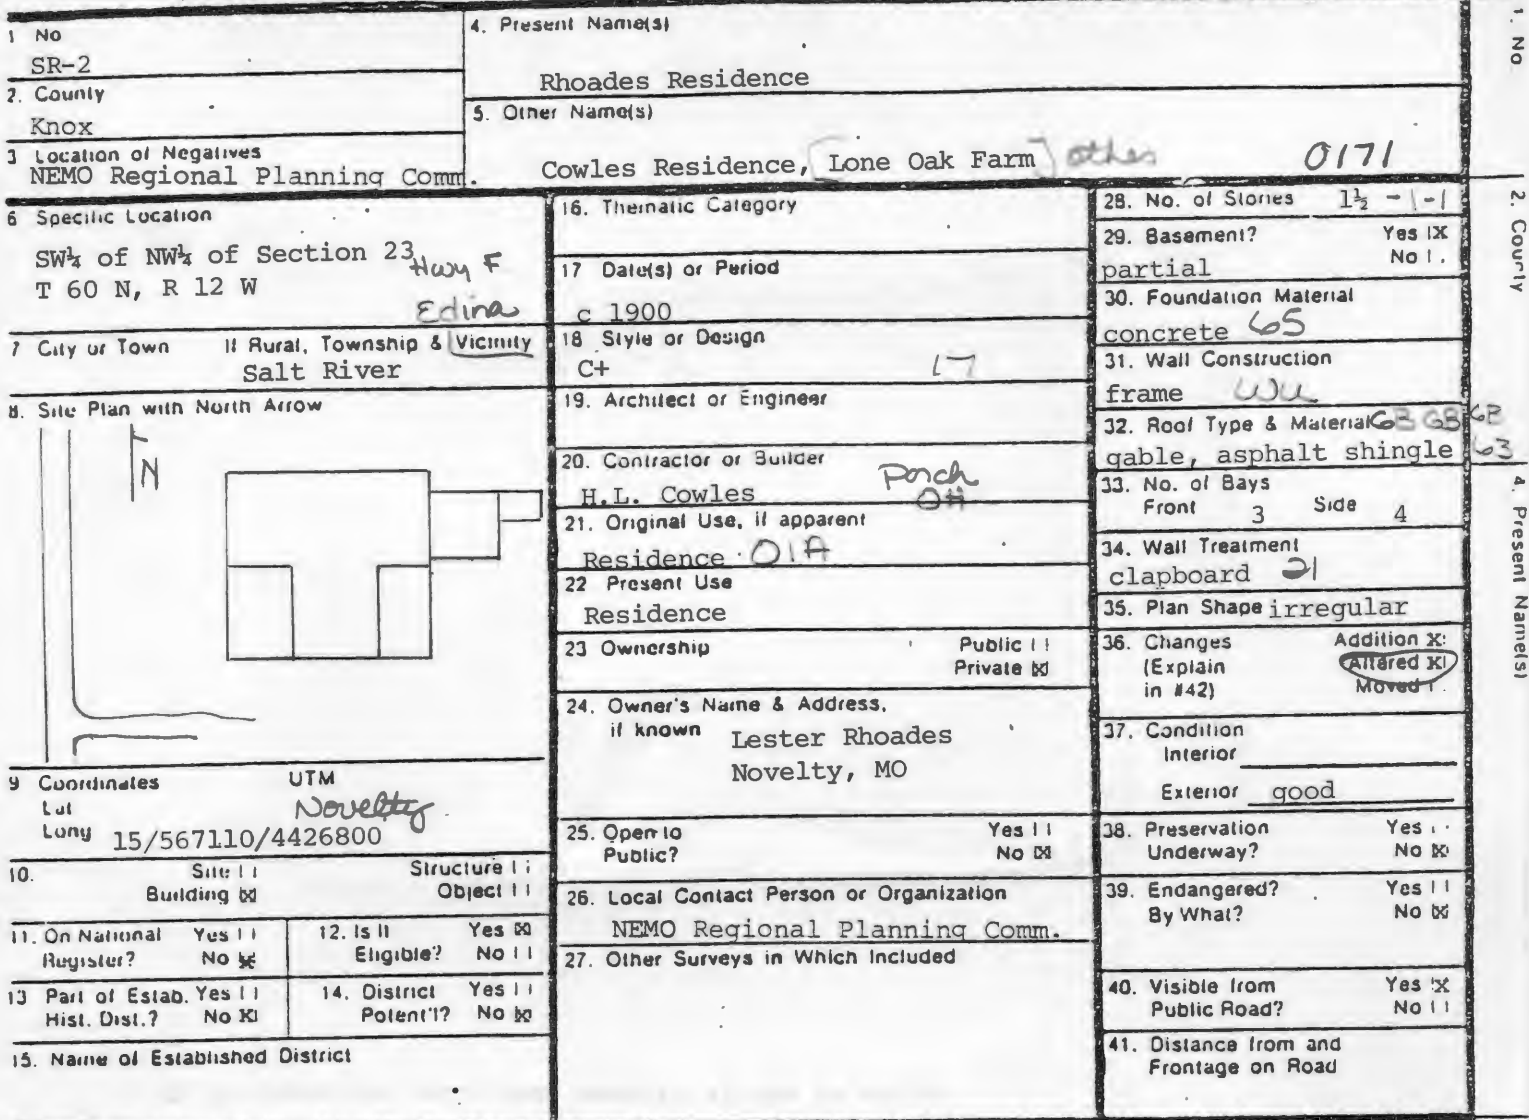 1 No
SR-2
2. County
Knox
3 Location of Negatives
NEMO Regional Planning Comm.
4. Present Name(s)
Rhoades Residence
5. Other Name(s)
Cowles Residence, [Lone Oak Farm] other 0171
6 Specific Location
SW¼ of NW¼ of Section 23 Hwy F
T 60 N, R 12 W
Edina
7 City or Town If Rural, Township & Vicinity
Salt River
8. Site Plan with North Arrow
N
9 Coordinates UTM
Lat
Novelty
Long 15/567110/4426800
10. Site | | Structure | |
Building [X] Object | |
11. On National Yes | | 12. Is It Yes [X]
Register? No [X] Eligible? No | |
13 Part of Estab. Yes | | 14. District Yes | |
Hist. Dist.? No [X] Potent'l? No [X]
15. Name of Established District
16. Thematic Category
17 Date(s) or Period
c 1900
18 Style or Design
C+ 17
19. Architect or Engineer
20. Contractor or Builder
H.L. Cowles Porch
OH
21. Original Use, if apparent
Residence 01A
22 Present Use
Residence
23 Ownership Public | |
Private [X]
24. Owner's Name & Address,
if known Lester Rhoades
Novelty, MO
25. Open to Yes | |
Public? No [X]
26. Local Contact Person or Organization
NEMO Regional Planning Comm.
27. Other Surveys in Which Included
28. No. of Stories 1½ -1-1
29. Basement? Yes [X]
partial No | |
30. Foundation Material
concrete 65
31. Wall Construction
frame WU
32. Roof Type & Material GB GB GB
gable, asphalt shingle 63
33. No. of Bays
Front 3 Side 4
34. Wall Treatment
clapboard 21
35. Plan Shape irregular
36. Changes Addition [X]
(Explain Altered [X]
in #42) Moved | |
37. Condition
Interior
Exterior good
38. Preservation Yes | |
Underway? No [X]
39. Endangered? Yes | |
By What? No [X]
40. Visible from Yes [X]
Public Road? No | |
41. Distance from and
Frontage on Road
1. No.
2. County
4. Present Name(s)